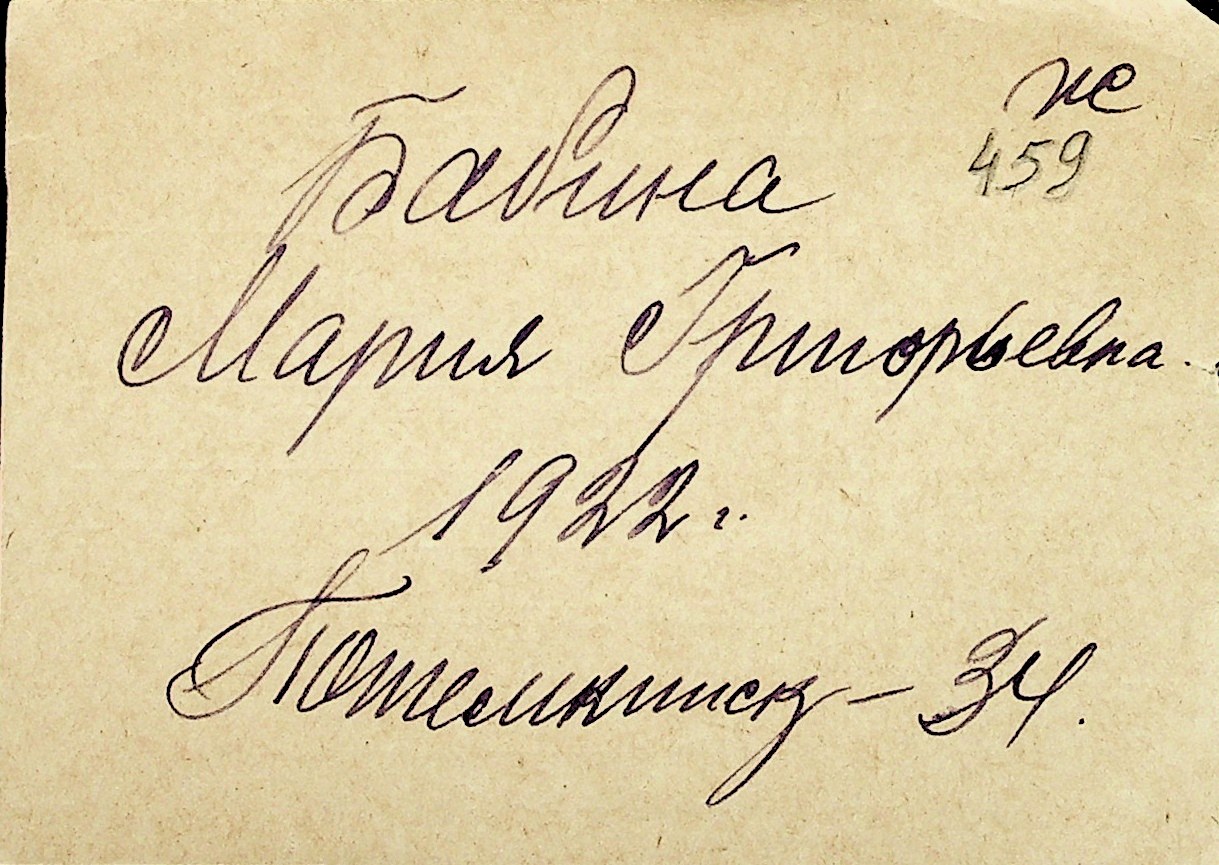 нс
459
Бабина
Мария Григорьевна.
1922 г.
Потемкинск – 34.